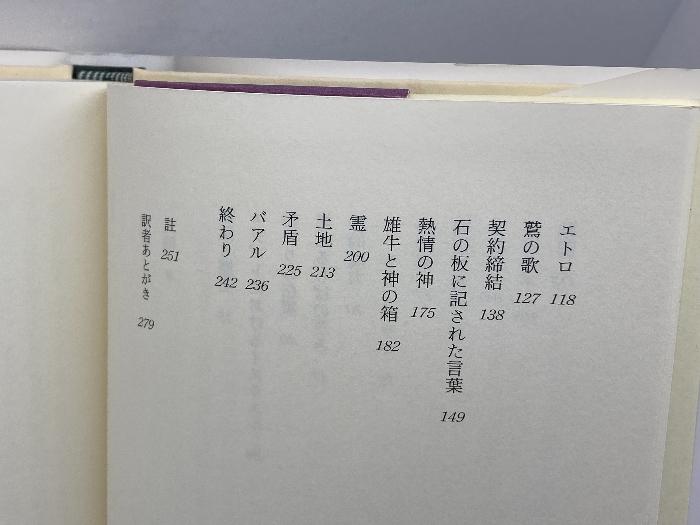 エトロ 118
鷲の歌 127
契約締結 138
石の板に記された言葉 149
熱情の神 175
雄牛と神の箱 182
霊 200
土地 213
矛盾 225
バアル 236
終わり 242
註 251
訳者あとがき 279